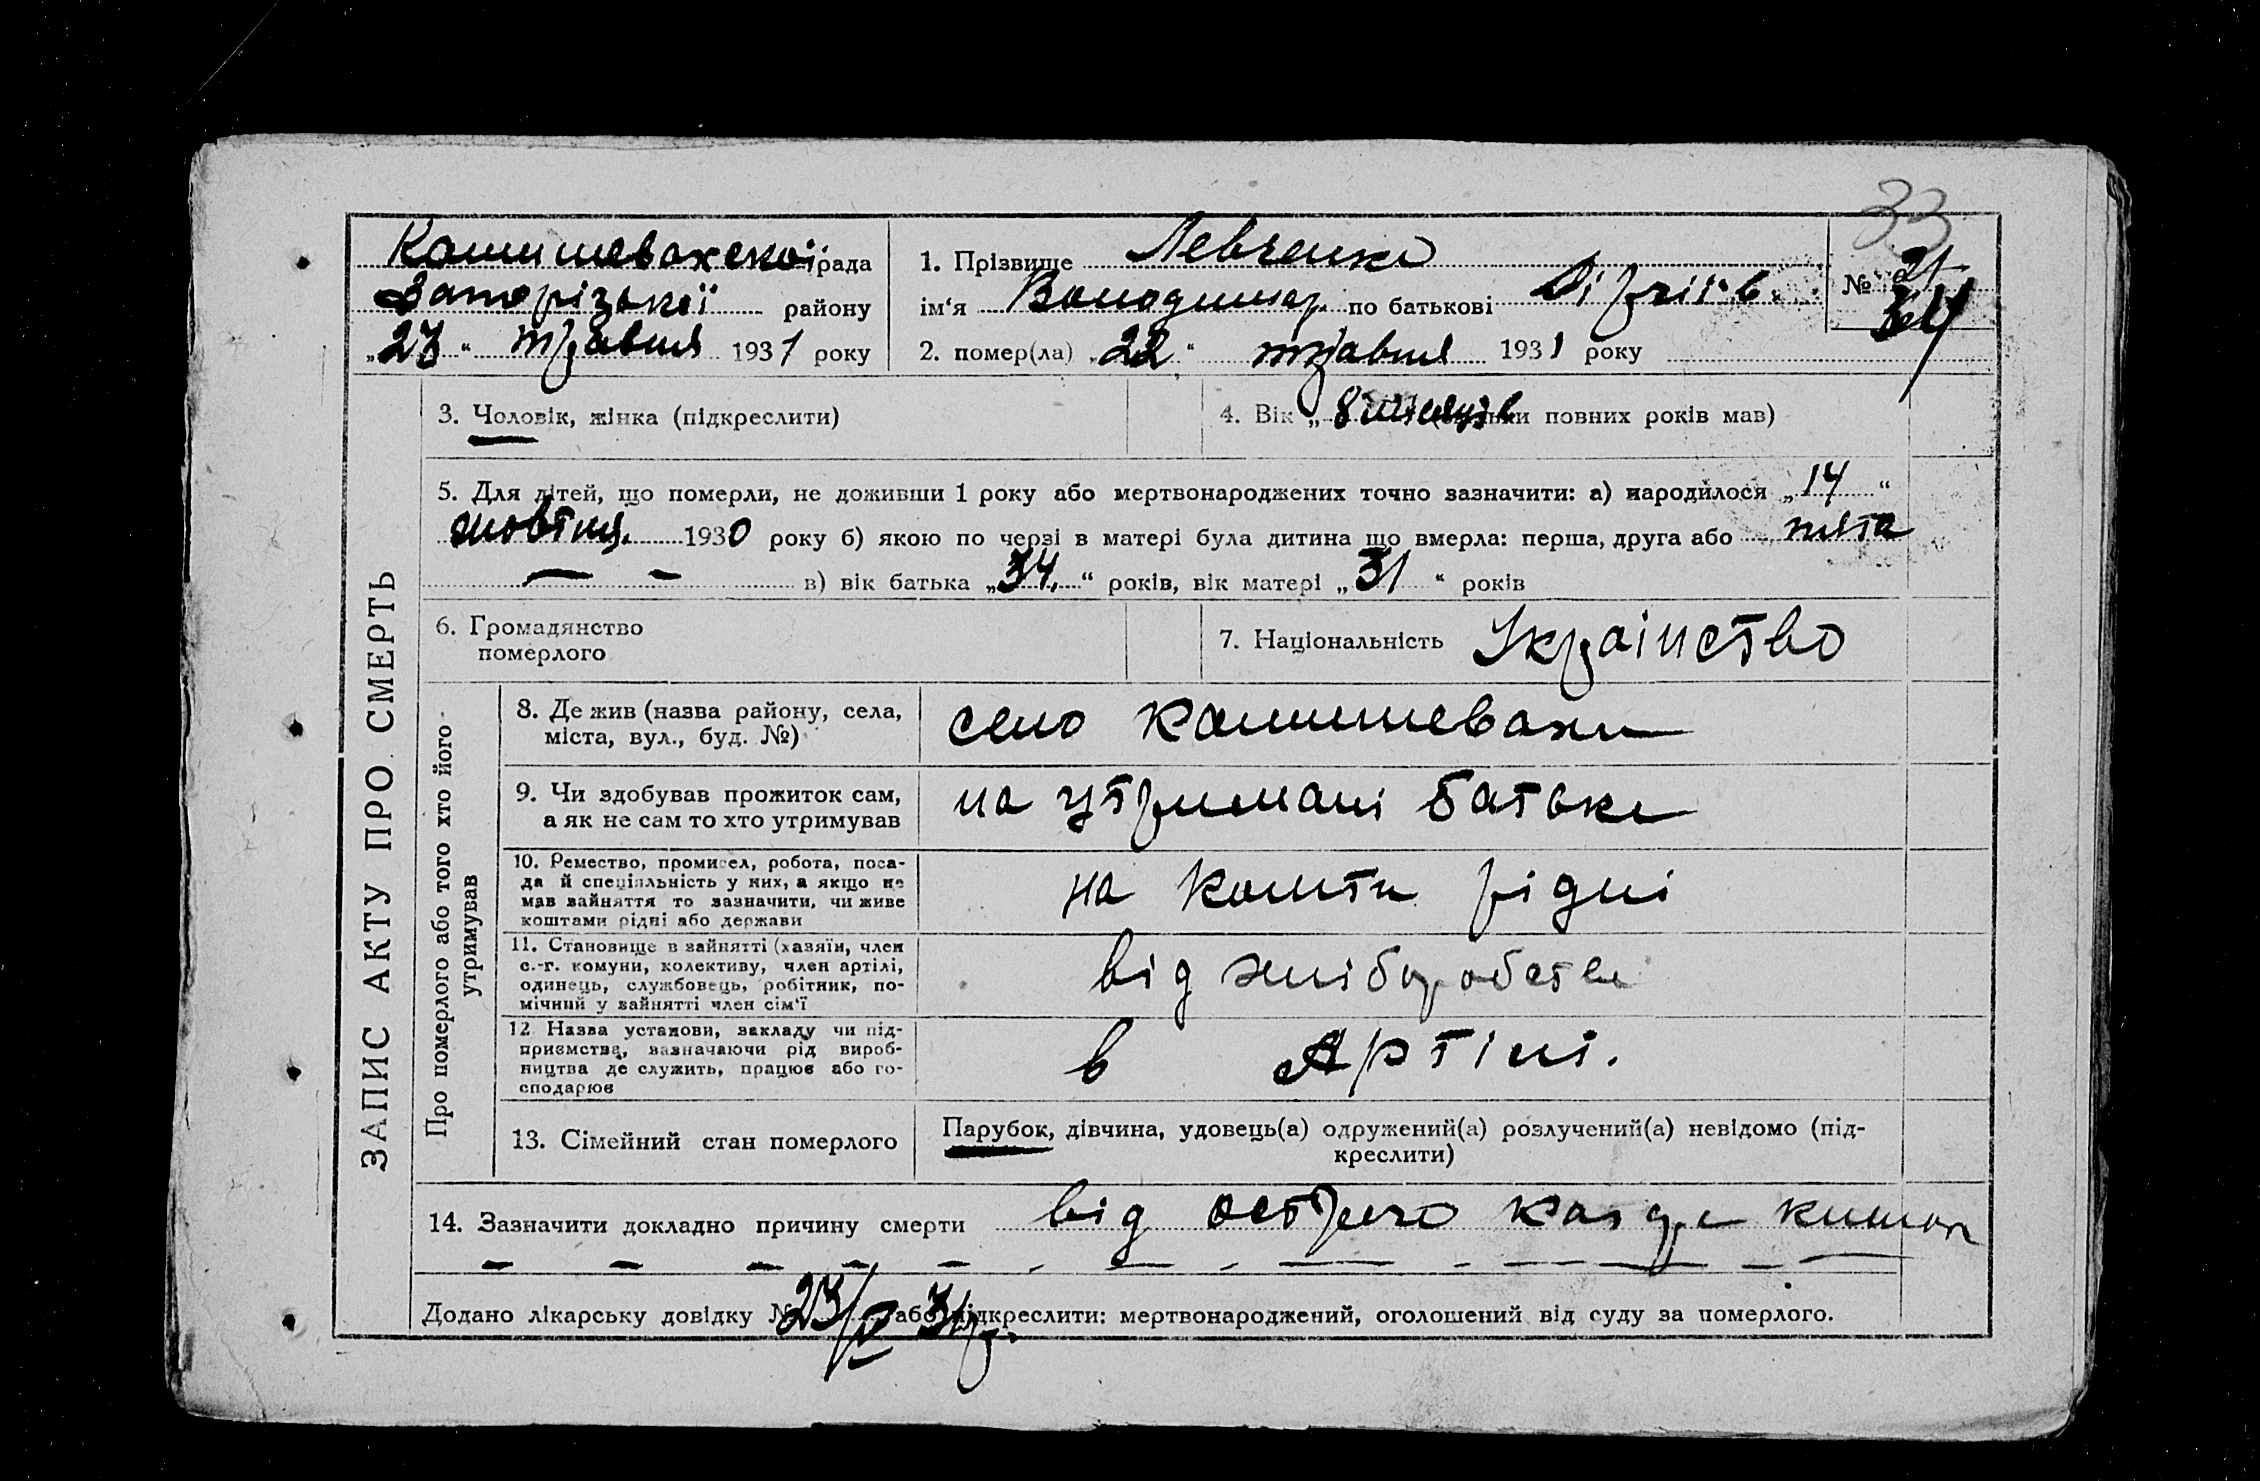 33
Комишевахскої рада
Запорізької району
„23“ травня 1931 року
1. Прізвище Левченко
ім‘я Володимир по батькові
2. помер(ла) „22“ травня 1931 року
№ 21
34
ЗАПИС АКТУ ПРО СМЕРТЬ
3. Чоловік, жінка (підкреслити)
4. Вік „ 8 місяців (скільки повних років мав)
5. Для дітей, що померли, не доживши 1 року або мертвонароджених точно зазначити: а) народилося „14“
жовтня 1930 року б) якою по черзі в матері була дитина що вмерла: перша, друга або пята
— — в) вік батька „34“ років, вік матері „31“ років
6. Громадянство
померлого
7. Національність Українство
Про померлого або того хто його
утримував
8. Де жив (назва району, села,
міста, вул., буд. №)
село Комишевахи
9. Чи здобував прожиток сам,
а як не сам то хто утримував
на утримані батьки
10. Ремество, промисел, робота, поса-
да й спеціяльність у них, а якщо не
мав зайняття то зазначити, чи живе
коштами рідні або держави
на кошти рідні
11. Становище в зайнятті (хазяїн, член
с.-г. комуни, колективу, член артілі,
одинець, службовець, робітник, по-
мічний у зайнятті член сім‘ї
від хліборобства
12 Назва установи, закладу чи під-
приємства, зазначаючи рід вироб-
ництва де служить, працює або го-
сподарює
в Артілі.
13. Сімейний стан померлого
Парубок, дівчина, удовець(а) одружений(а) розлучений(а) невідомо (під-
креслити)
14. Зазначити докладно причину смерти від острого катара кишок
Додано лікарську довідку № 23/V 31 р. або підкреслити: мертвонароджений, оголошений від суду за померлого.